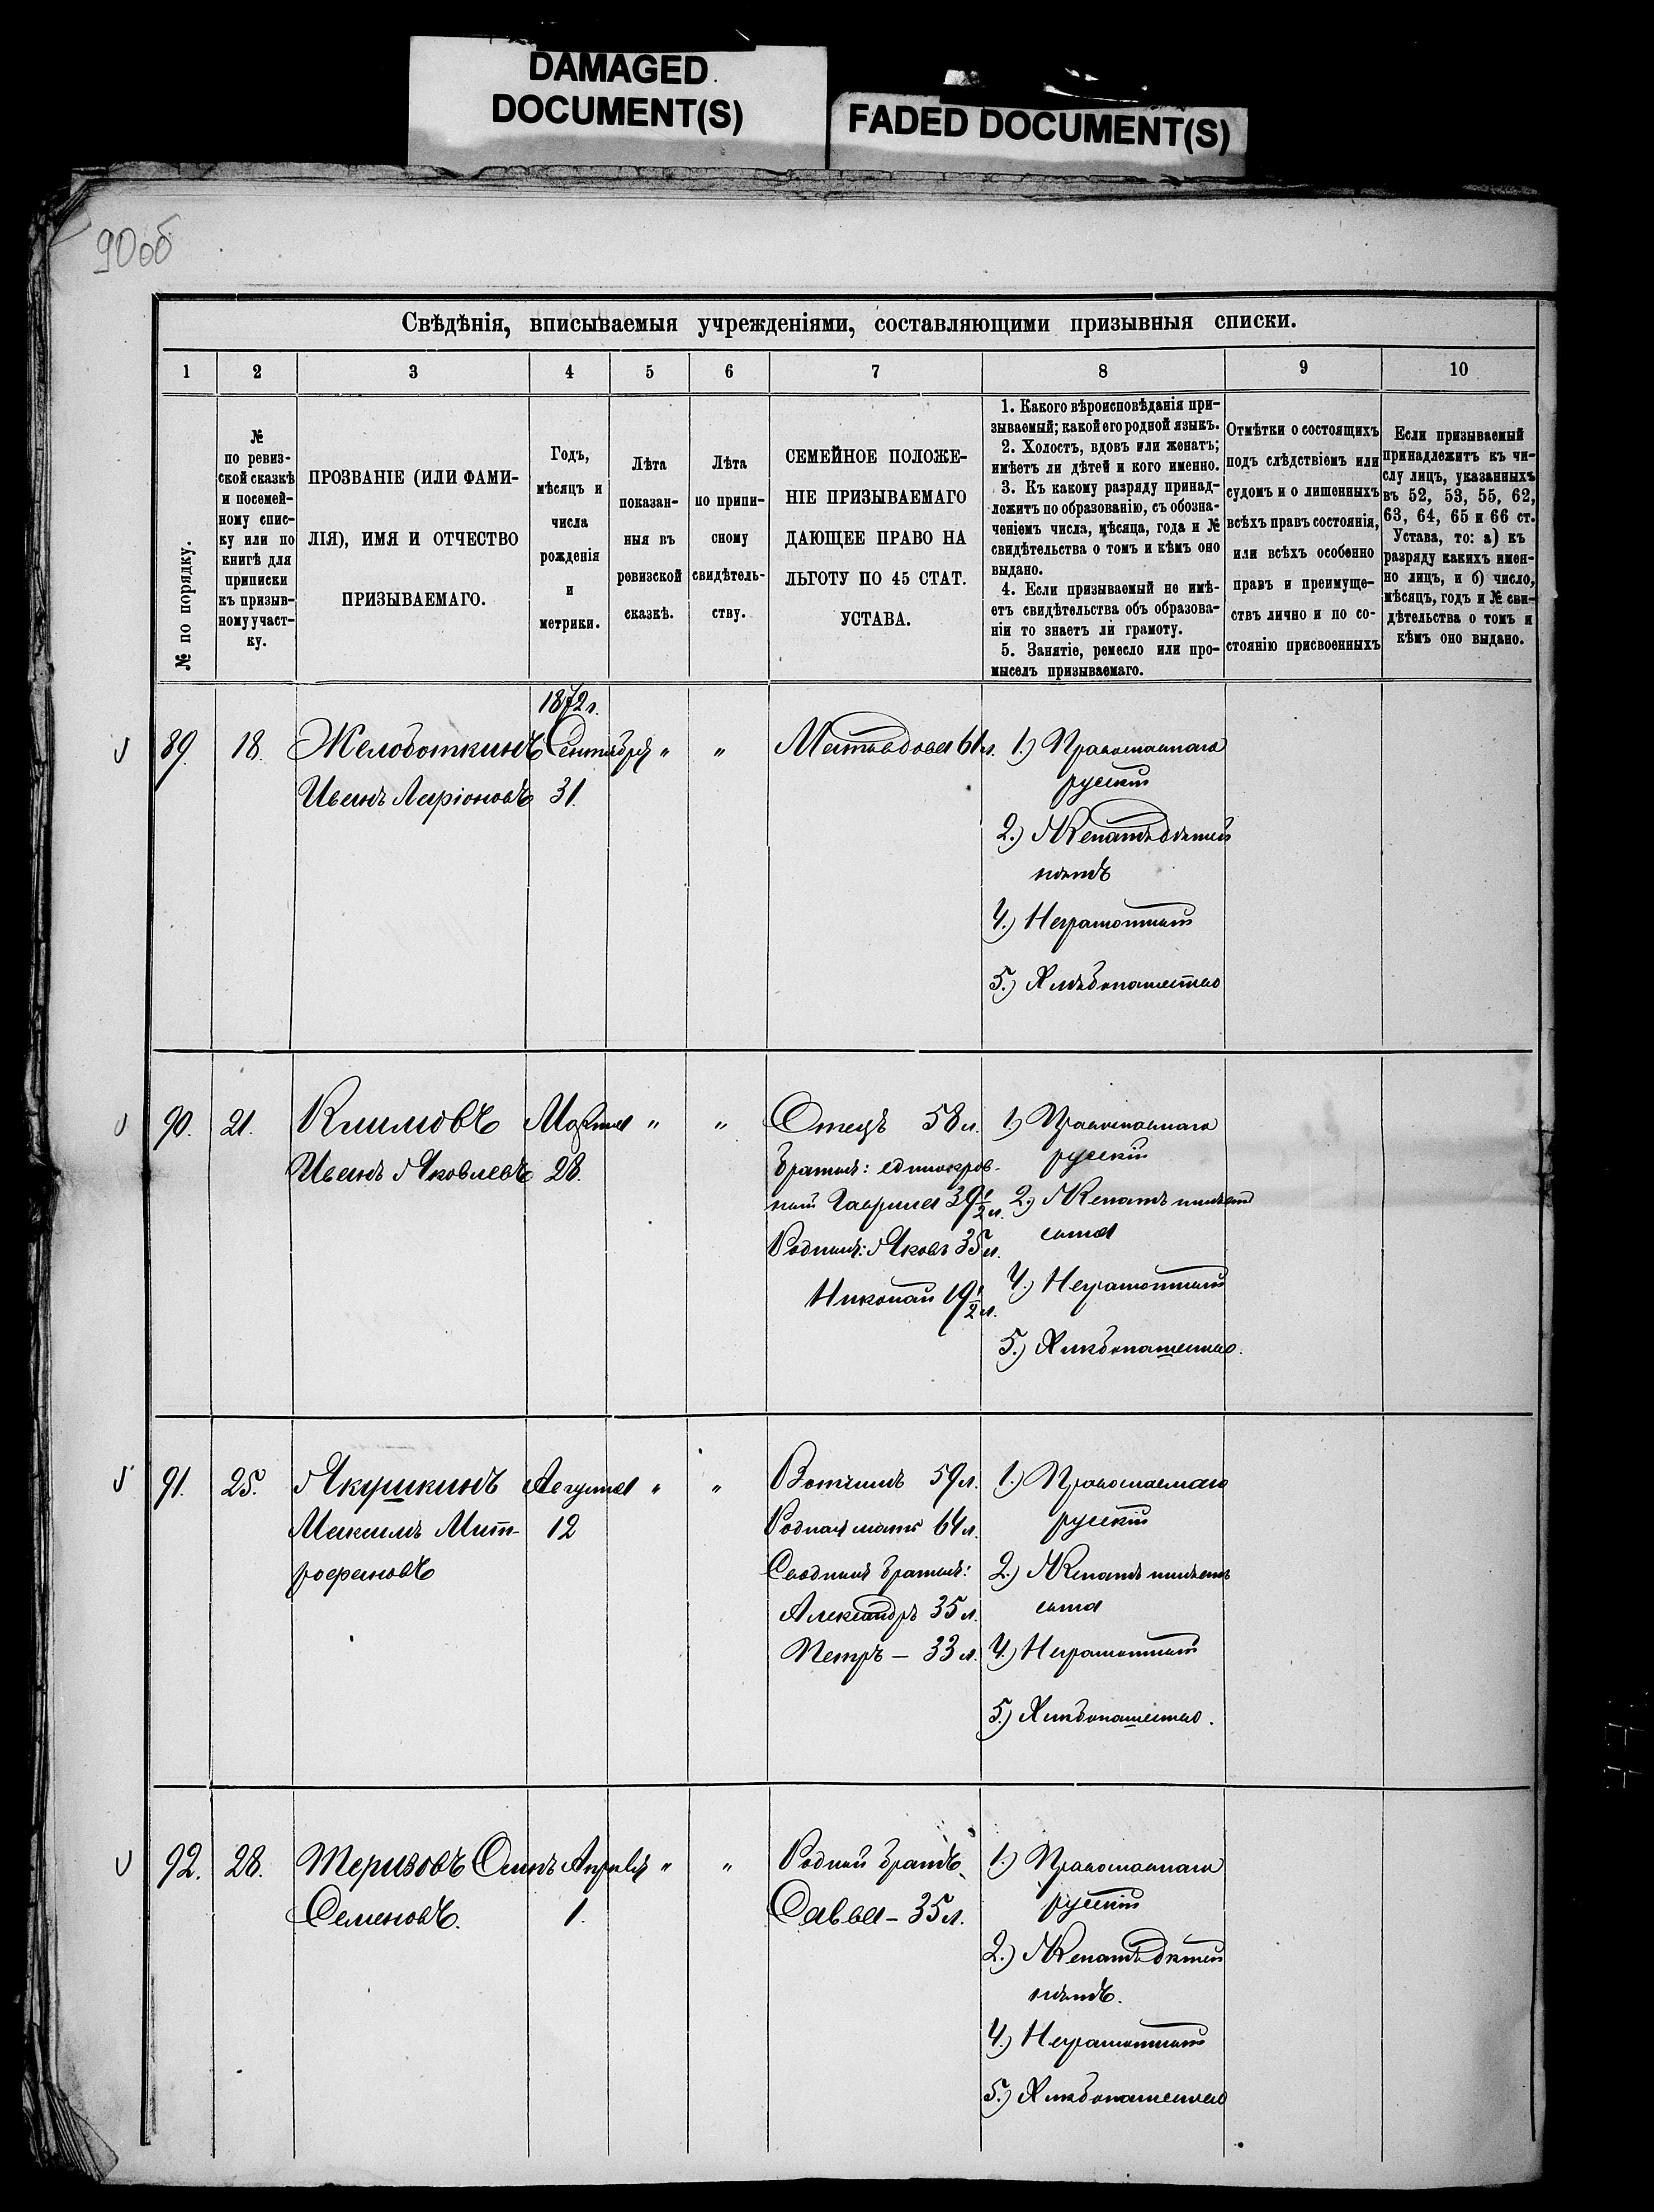 DAMAGED
DOCUMENT(S)
FADED DOCUMENT(S)
90об
Свѣдѣнія, вписываемыя учрежденіями, составляющими призывныя списки.
1 2 3 4 5 6 7 8 9 10
№ по порядку.
№
по ревиз-
ской сказкѣ
и посемей-
ному спис-
ку или по
книгѣ для
приписки
къ призыв-
ному участ-
ку.
ПРОЗВАНІЕ (ИЛИ ФАМИ-
ЛІЯ), ИМЯ И ОТЧЕСТВО
ПРИЗЫВАЕМАГО.
Годъ,
мѣсяцъ и
числа
рожденія
и
метрики.
Лѣта
показан-
ныя въ
ревизской
сказкѣ.
Лѣта
по припи-
сному
свидѣтель-
ству.
СЕМЕЙНОЕ ПОЛОЖЕ-
НІЕ ПРИЗЫВАЕМАГО
ДАЮЩЕЕ ПРАВО НА
ЛЬГОТУ ПО 45 СТАТ.
УСТАВА.
1. Какого вѣроисповѣданія при-
зываемый; какой его родной языкъ.
2. Холостъ, вдовъ или женатъ;
имѣетъ ли дѣтей и кого именно.
3. Къ какому разряду принад-
лежитъ по образованію, съ обозна-
ченіемъ числа, мѣсяца, года и №
свидѣтельства о томъ и кѣмъ оно
выдано.
4. Если призываемый не имѣ-
етъ свидѣтельства объ образова-
ніи то знаетъ ли грамоту.
5. Занятіе, ремесло или про-
мыселъ призываемаго.
Отмѣтки о состоящихъ
подъ слѣдствіемъ или
судомъ и о лишенныхъ
всѣхъ правъ состоянія,
или всѣхъ особенно
правъ и преимуще-
ствъ лично и по со-
стоянію присвоенныхъ
Если призываемый
принадлежитъ къ чи-
слу лицъ, указанныхъ
въ 52, 53, 55, 62,
63, 64, 65 и 66 ст.
Устава, то: а) къ
разряду какихъ имен-
но лицъ, и б) число,
мѣсяцъ, годъ и № сви-
дѣтельства о томъ и
кѣмъ оно выдано.
89. 18. Желоботкинъ
Иванъ Ларіоновъ
1872 г.
Сентября
31.
" "
Мать вдова 61 л.
1.) Православнаго
русскій
2.) Женатъ дѣтей
нѣтъ
4.) Неграмотный
5.) Хлѣбопашество
90. 21. Климовъ
Иванъ Яковлевъ
Марта
28.
" "
Отецъ 58 л.
Братья: единокров-
ный Гаврила 39 1/2 л.
Родные: Яковъ 35 л.
Николай 19 1/2 л.
1.) Православнаго
русскій
2.) Женатъ имѣетъ
сына
4.) Неграмотный
5.) Хлѣбопашество.
91. 25. Якушкинъ
Максимъ Мит-
рофановъ
Августа
12
" "
Вотчимъ 59 л.
Родная мать 64 л.
Сводные братья:
Александръ 35 л.
Петръ – 33 л.
1.) Православнаго
русскій
2.) Женатъ имѣетъ
сына
4.) Неграмотный
5.) Хлѣбопашество.
92. 28. Теризовъ Осипъ
Семеновъ.
Апрѣля
1.
" "
Родной братъ
Савва – 35 л.
1.) Православнаго
русскій
2.) Женатъ дѣтей
нѣтъ.
4.) Неграмотный
5.) Хлѣбопашество